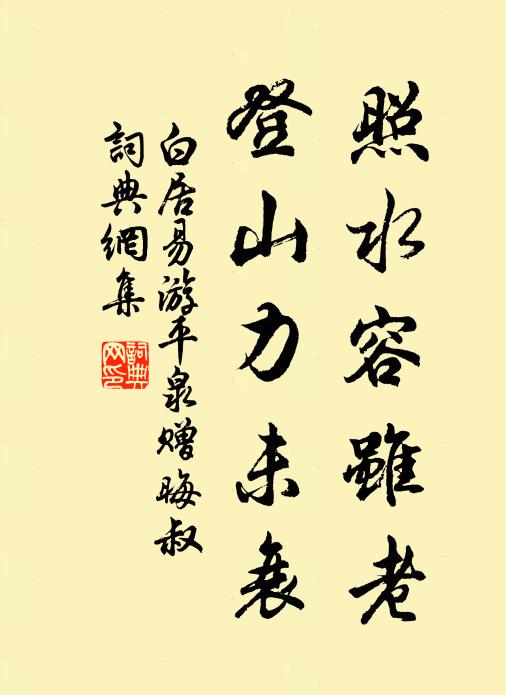 照水容雖老
登山力未衰
白居易游平泉贈晦叔
詞典網集
詞典
网印